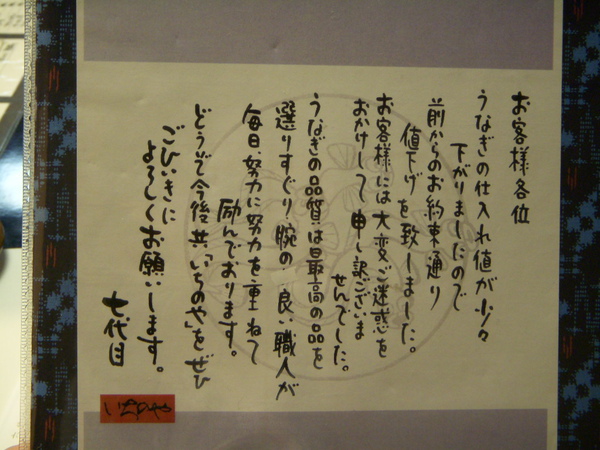 お客様各位
うなぎの仕入れ値が少々
下がりましたので
前からのお約束通り
値下げを致しました。
お客様には大変ご迷惑を
おかけして申し訳ございま
せんでした。
うなぎの品質は最高の品を
選りすぐり腕の良い職人が
毎日努力に努力を重ねて
励んでおります。
どうぞ今後共「いちのや」をぜひ
ごひいきに
よろしくお願いします。
七代目
いちのや